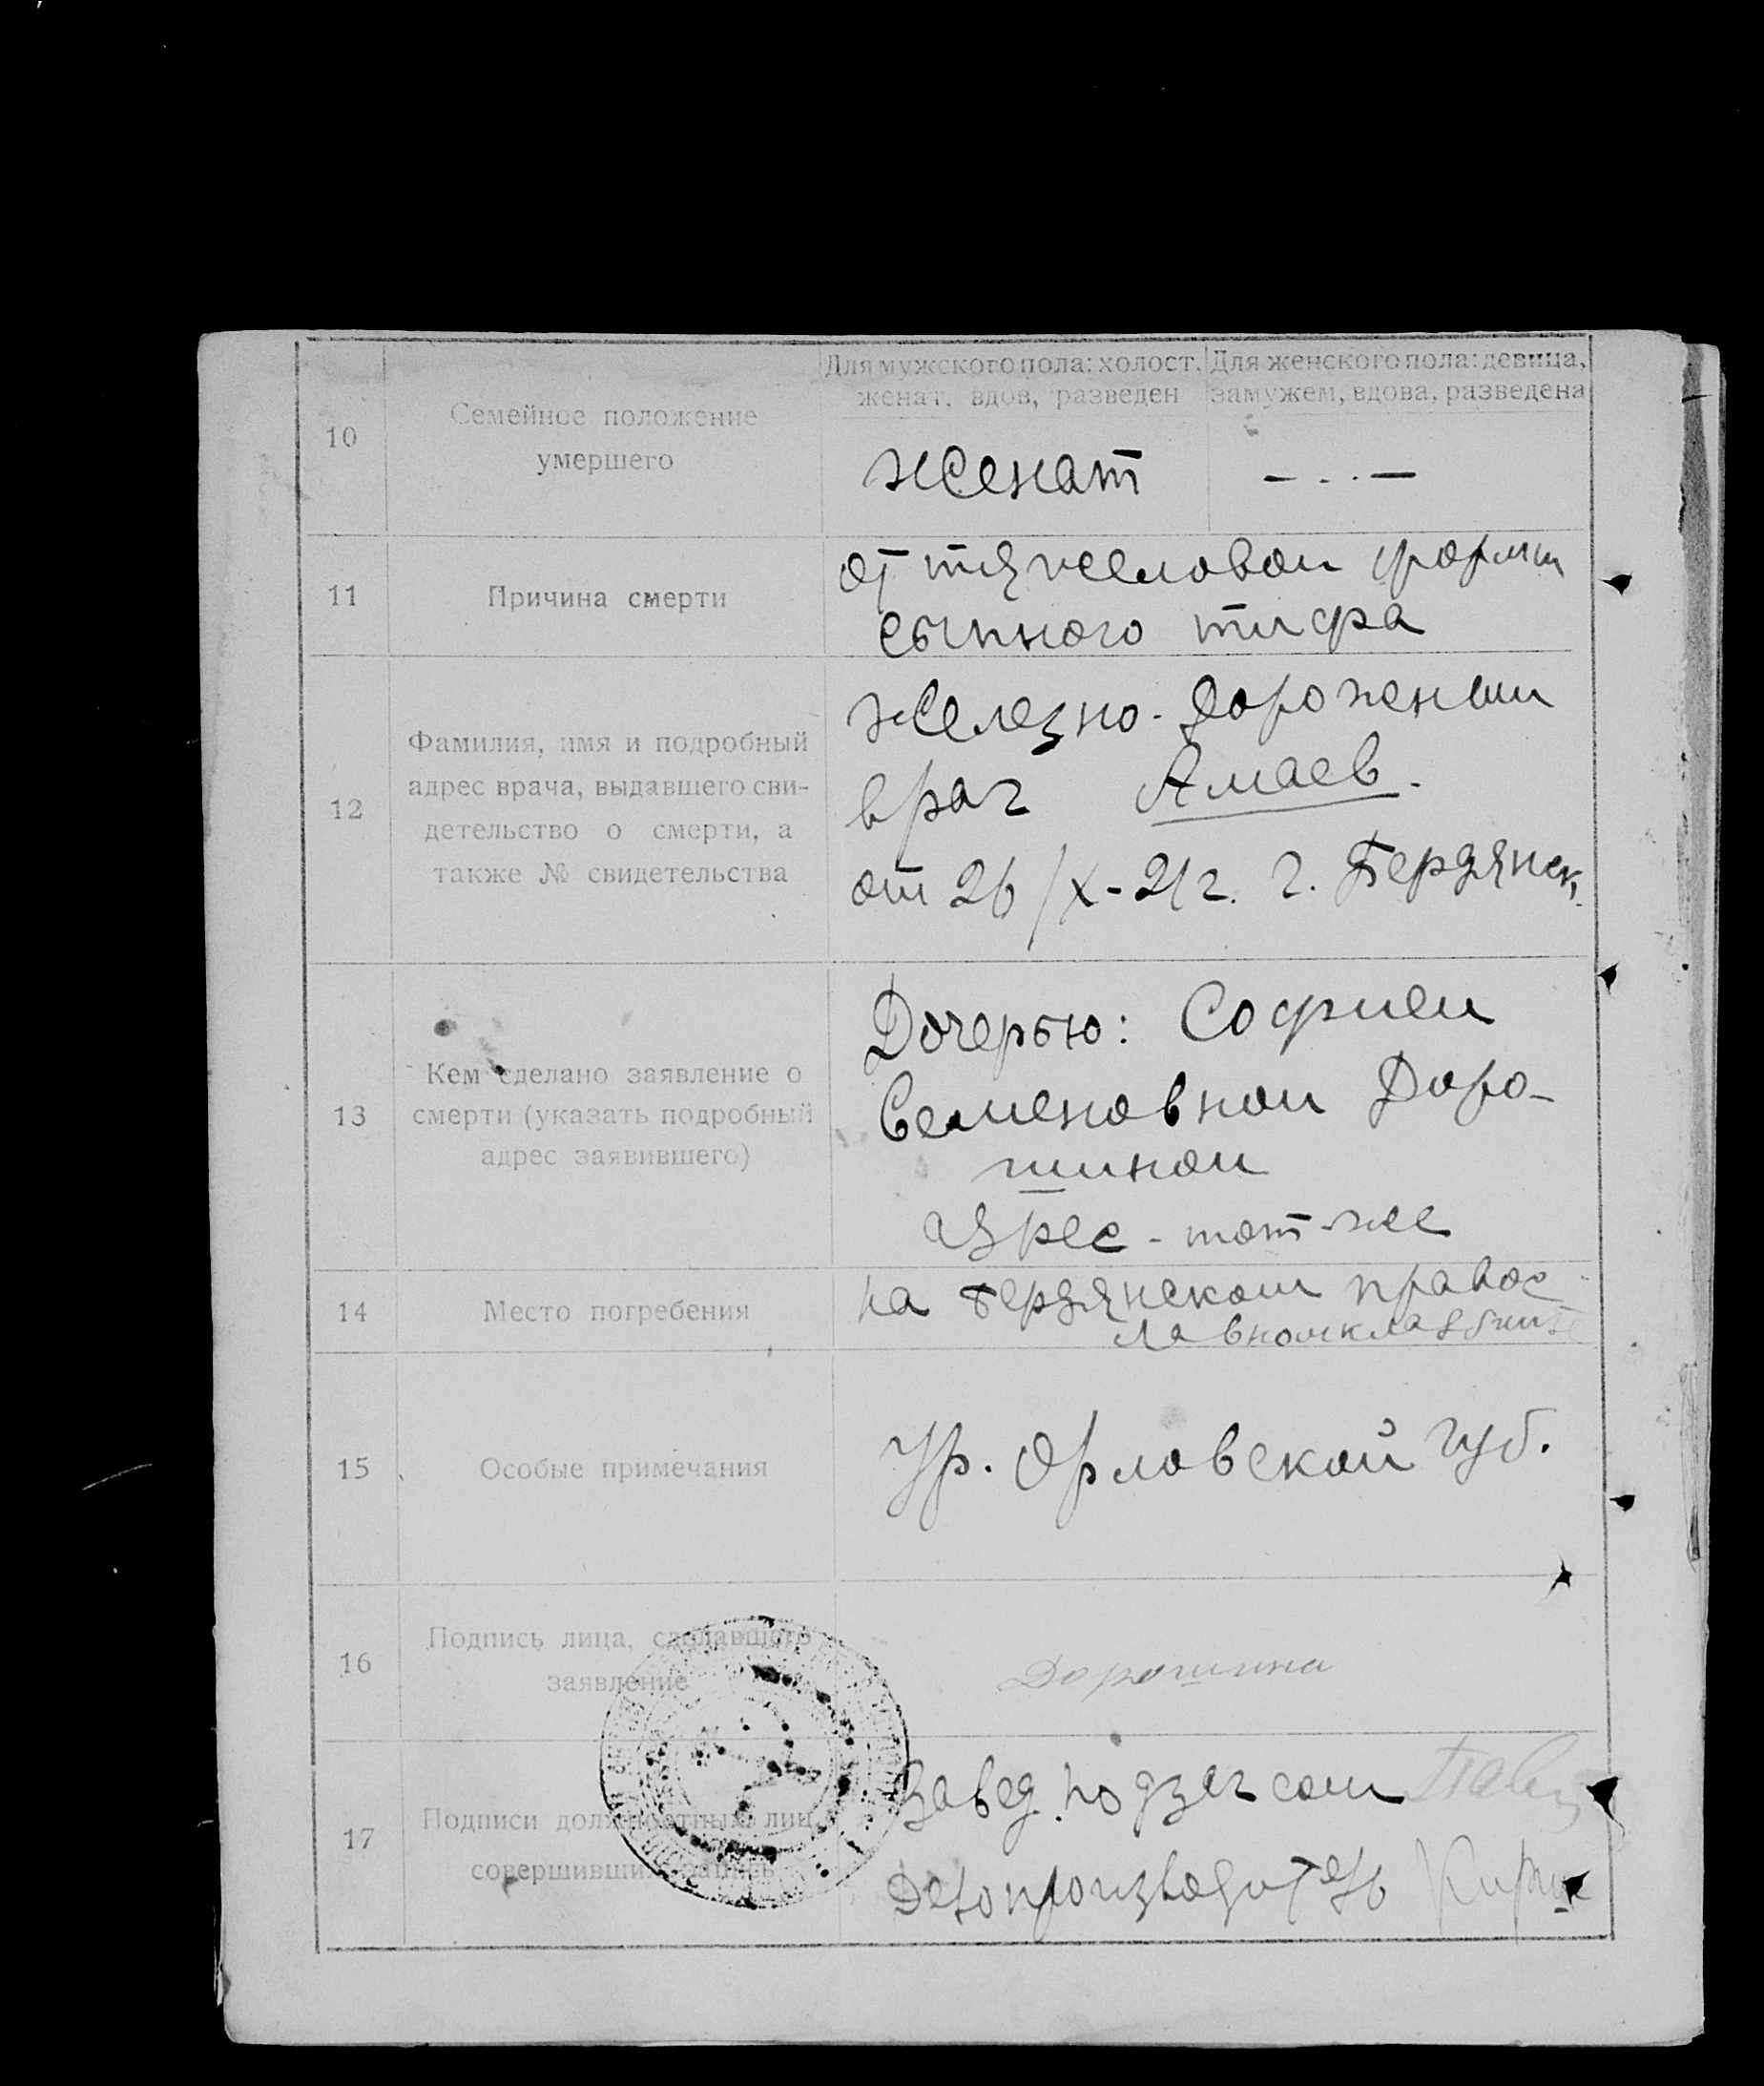 10
Семейное положение
умершего
Для мужского пола: холост,
женат, вдов, разведен
Для женского пола: девица,
замужем, вдова, разведена
женат
— . . —
11
Причина смерти
от тяжеловой формы
сыпного тифа
12
Фамилия, имя и подробный
адрес врача, выдавшего сви-
детельство о смерти, а
также № свидетельства
железно-дорожный
врач Амаев.
от 26/X-21г. г. Бердянск.
13
Кем сделано заявление о
смерти (указать подробный
адрес заявившего)
Дочерью: Софией
Семеновной Доро-
шиной
адрес - тот-же
14
Место погребения
на бердянском правос
лавном кладбище
15
Особые примечания
Ур. Орловской губ.
16
Подпись лица, сделавшего
заявление
Дорошина
17
Подписи должностных лиц,
совершивших запись
Завед. подзагсом
Делопроизводитель